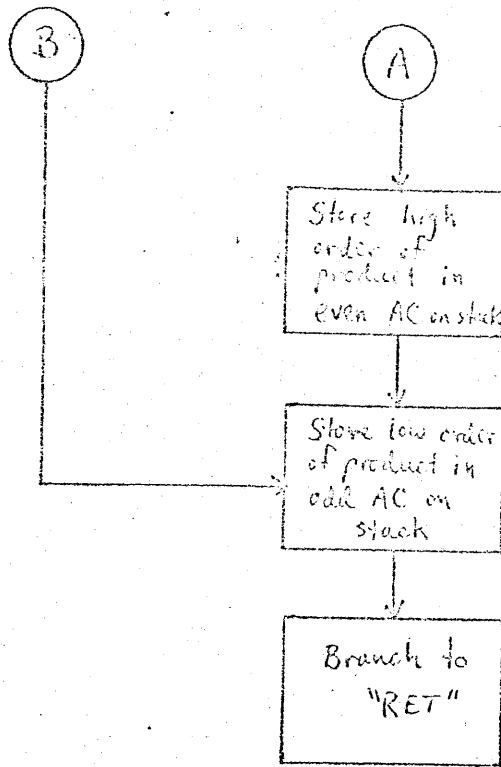 B
A
Store high
order of
product in
even AC on stack
Store low order
of product in
odd AC on
stack
Branch to
"RET"